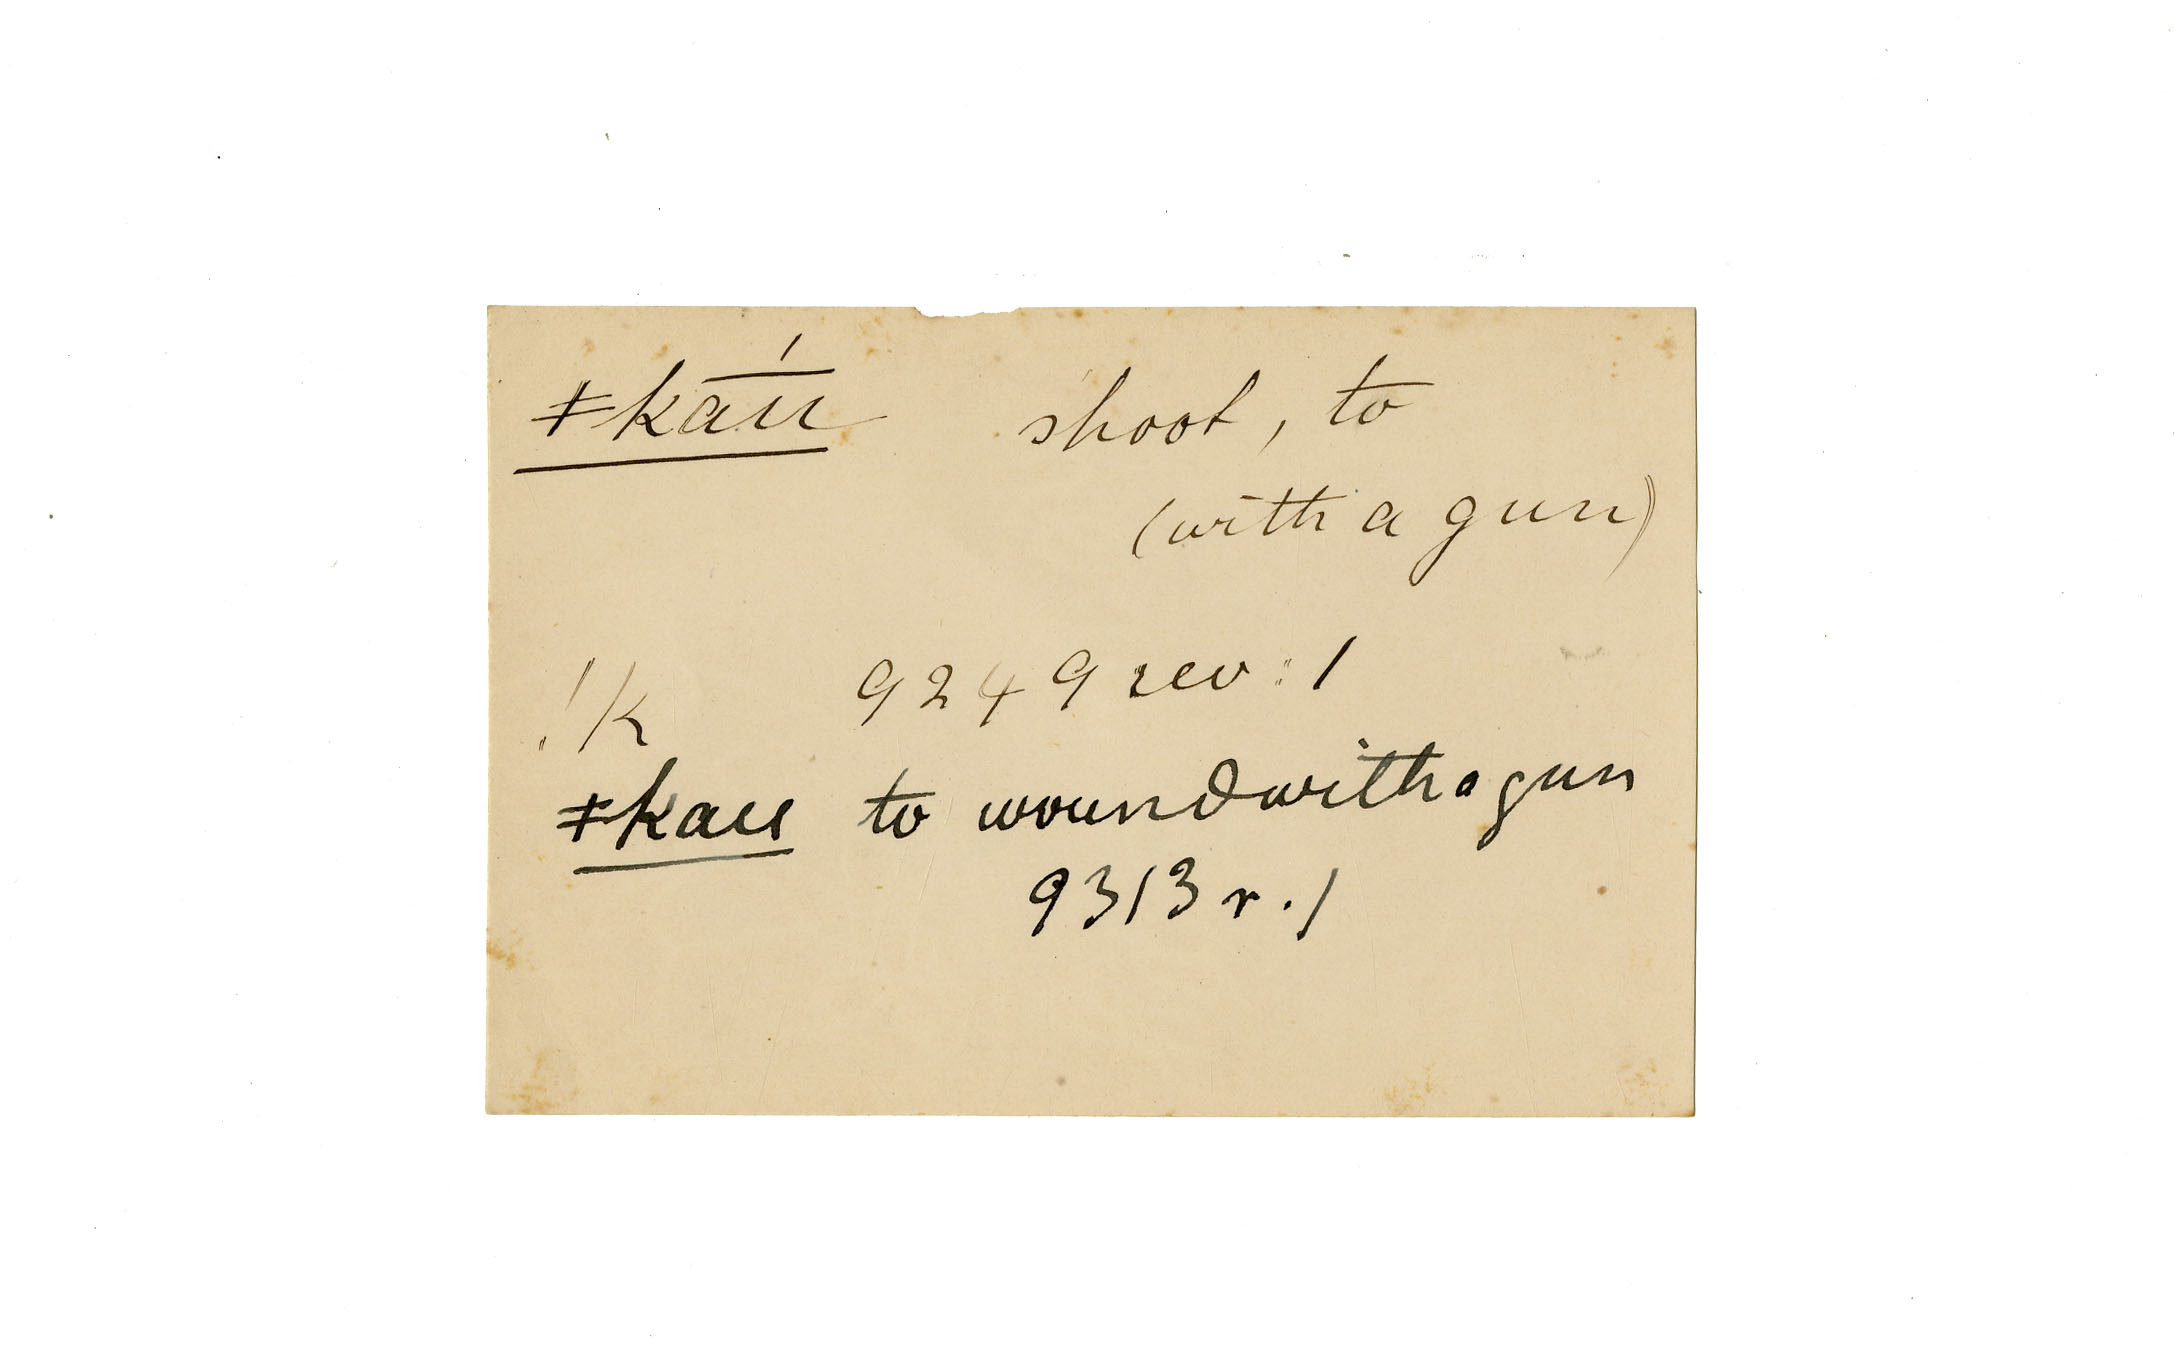 ǂka̅u̅́ shoot, to
(with a gun)
!k 9249 rev: 1
ǂkau to wound with a gun
9313 r. 1